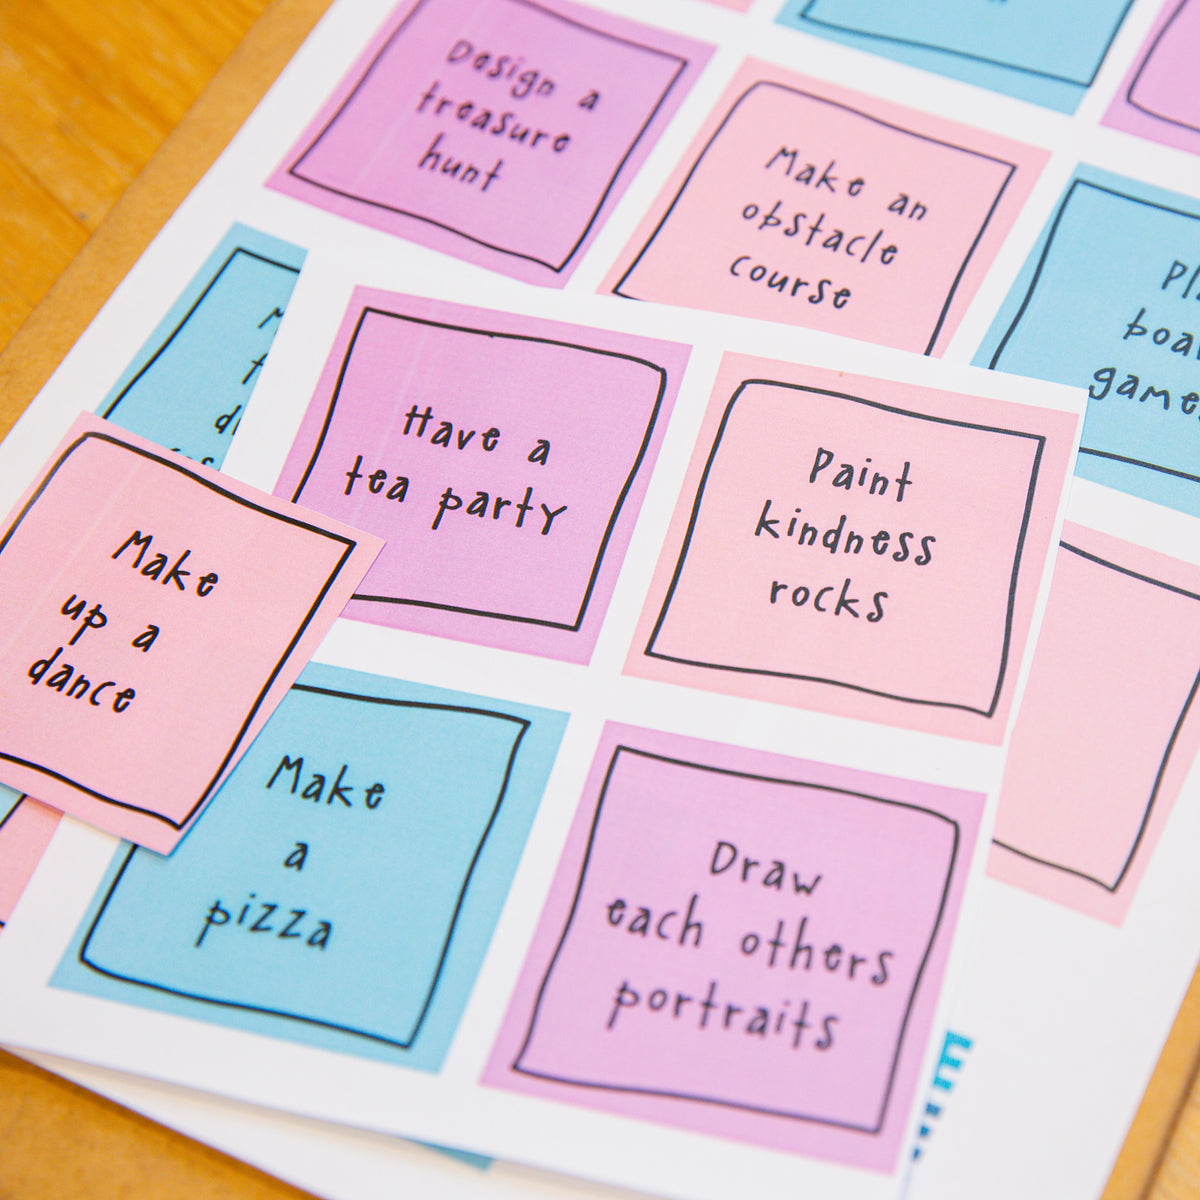 Design a
treasure
hunt
Make an
obstacle
course
Have a
tea party
Paint
kindness
rocks
Make
up a
dance
Make
a
pizza
Draw
each others
portraits